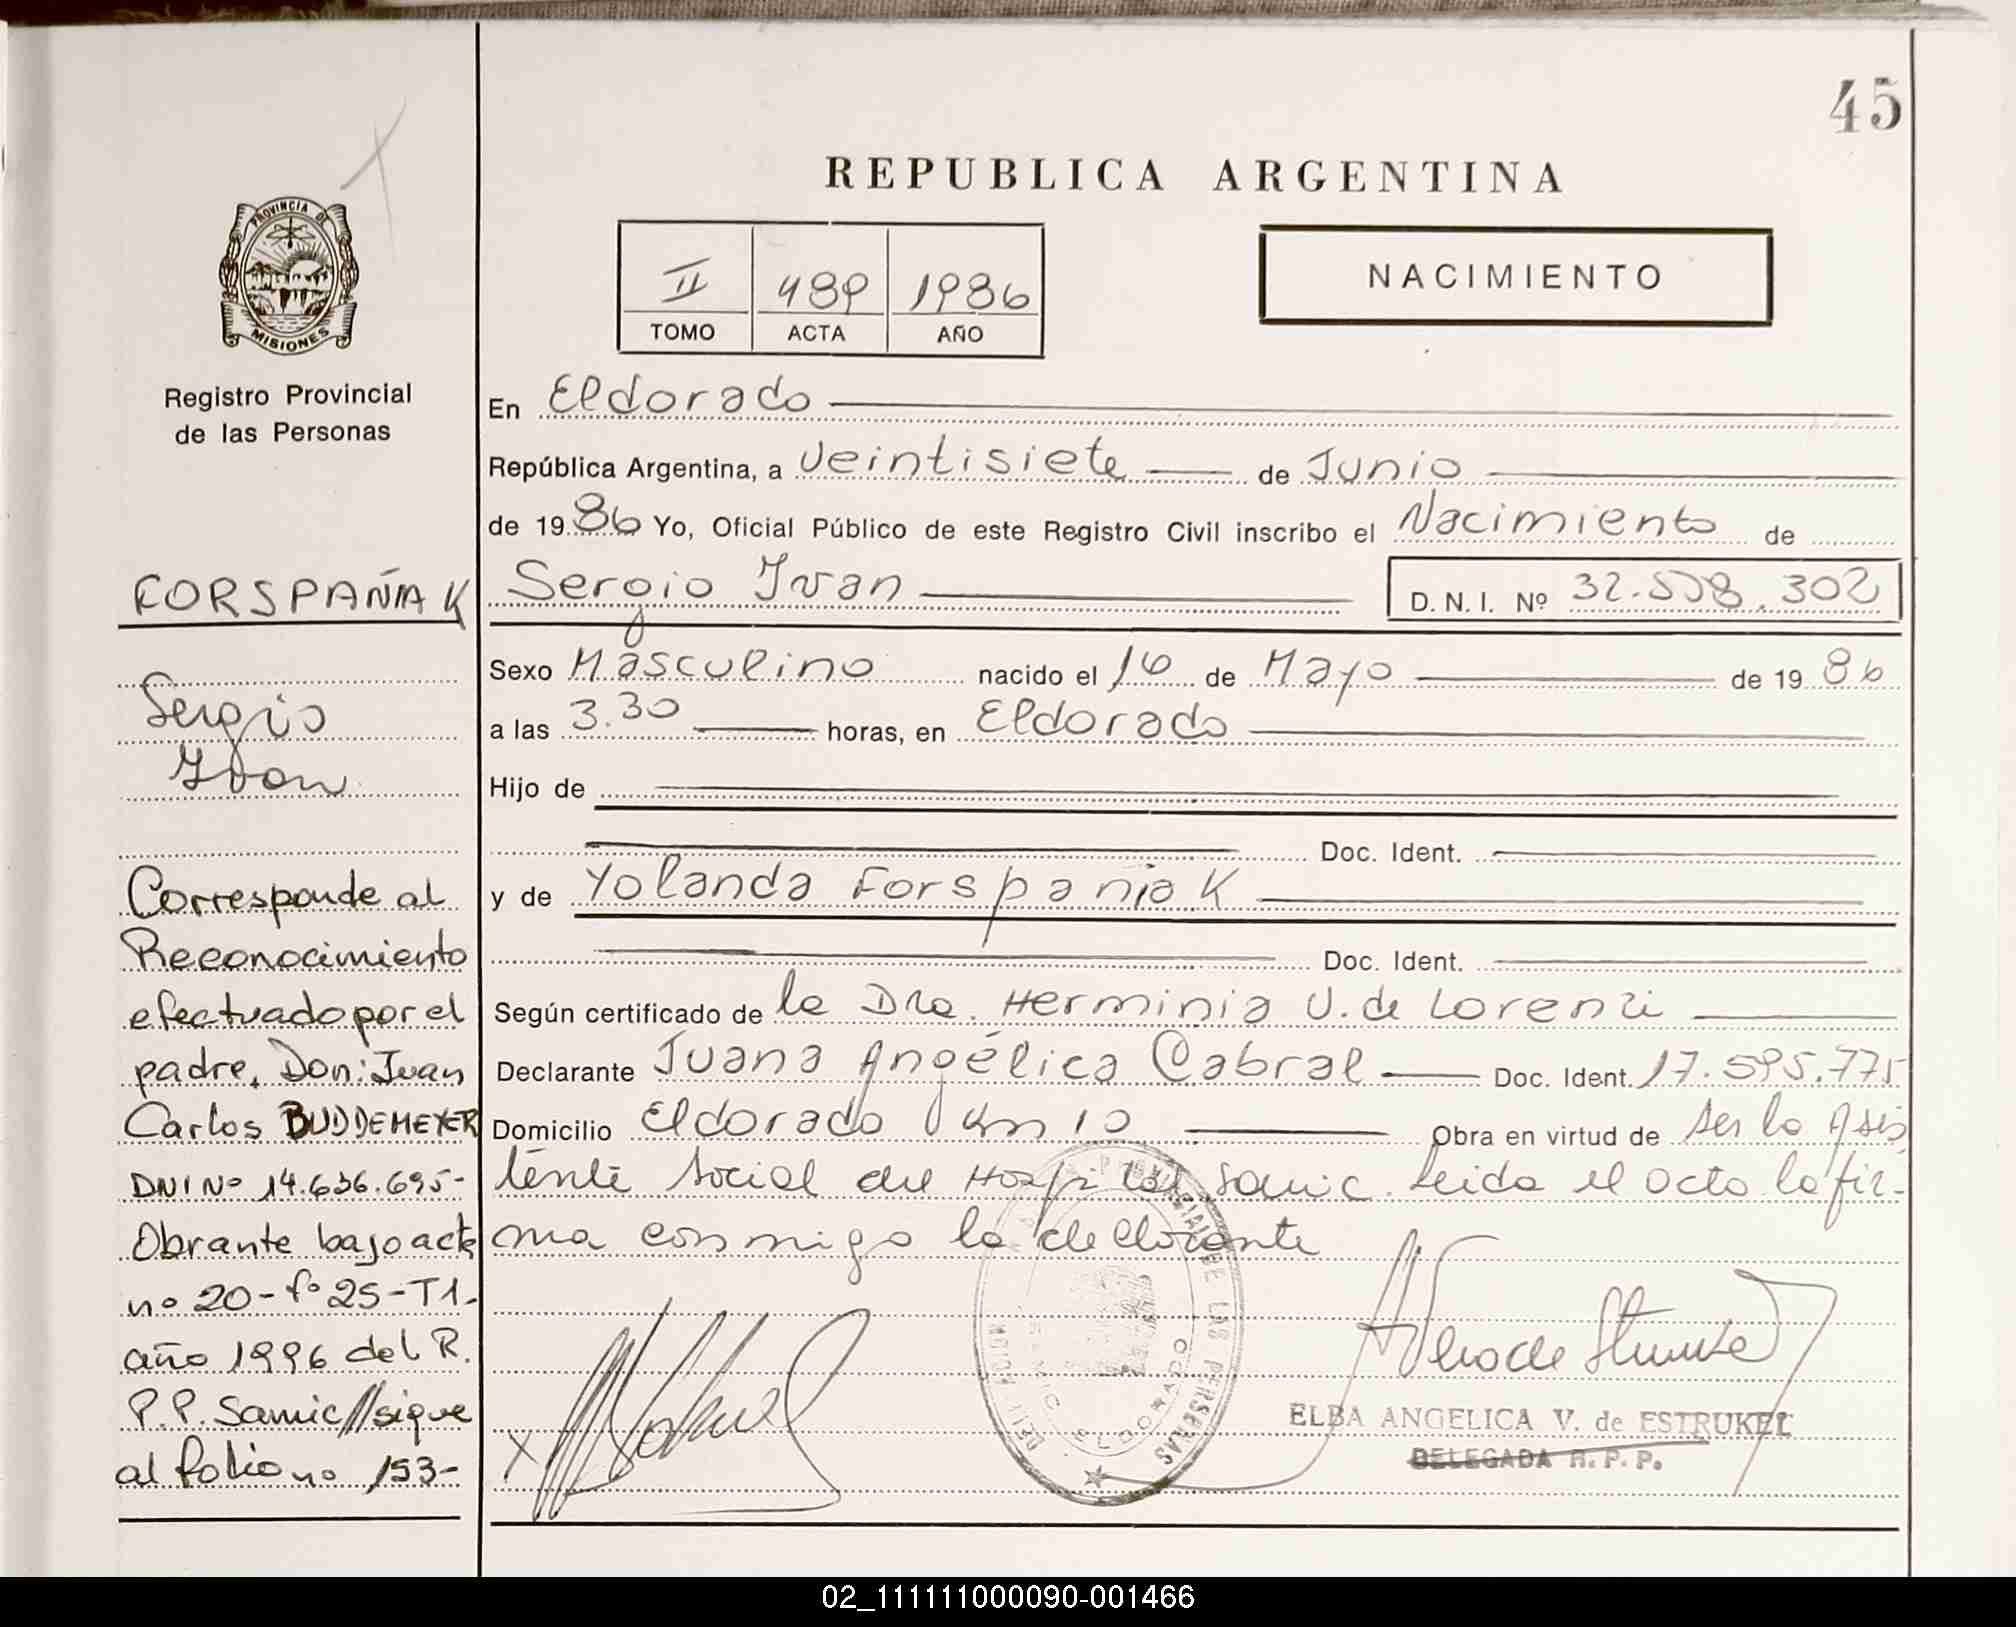 45
REPUBLICA ARGENTINA
PROVINCIA DE
MISIONES
II 489 1986
TOMO ACTA AÑO
NACIMIENTO
Registro Provincial
de las Personas
En Eldorado
República Argentina, a veintisiete de Junio
de 1986 Yo, Oficial Público de este Registro Civil inscribo el Nacimiento de
Sergio Ivan D. N. I. Nº 32.538.302
Sexo Masculino nacido el 16 de Mayo de 1986
a las 3.30 horas, en Eldorado
Hijo de
Doc. Ident.
y de Yolanda Forspaniak
Doc. Ident.
Según certificado de la Dra. Herminia V. de Lorenzi
Declarante Juana Angélica Cabral Doc. Ident. 17.595.775
Domicilio Eldorado Km 10 Obra en virtud de ser la Asis
tente Social del Hospital Samic. Leida el acta la fir-
ma conmigo la declarante
FORSPAÑIAK
Sergio
Ivan
Corresponde al
Reconocimiento
efectuado por el
padre, Don: Juan
Carlos BUDDEMEYER
DNI Nº 14.636.695-
Obrante bajo acta
nº 20-fº 25-T1.
año 1996 del R.
P.P. Samic//sigue
al folio nº 153-
ELBA ANGELICA V. de ESTRUKEL
DELEGADA R. P. P.
DE LAS PERSONAS
ELDORADO
02_111111000090-001466